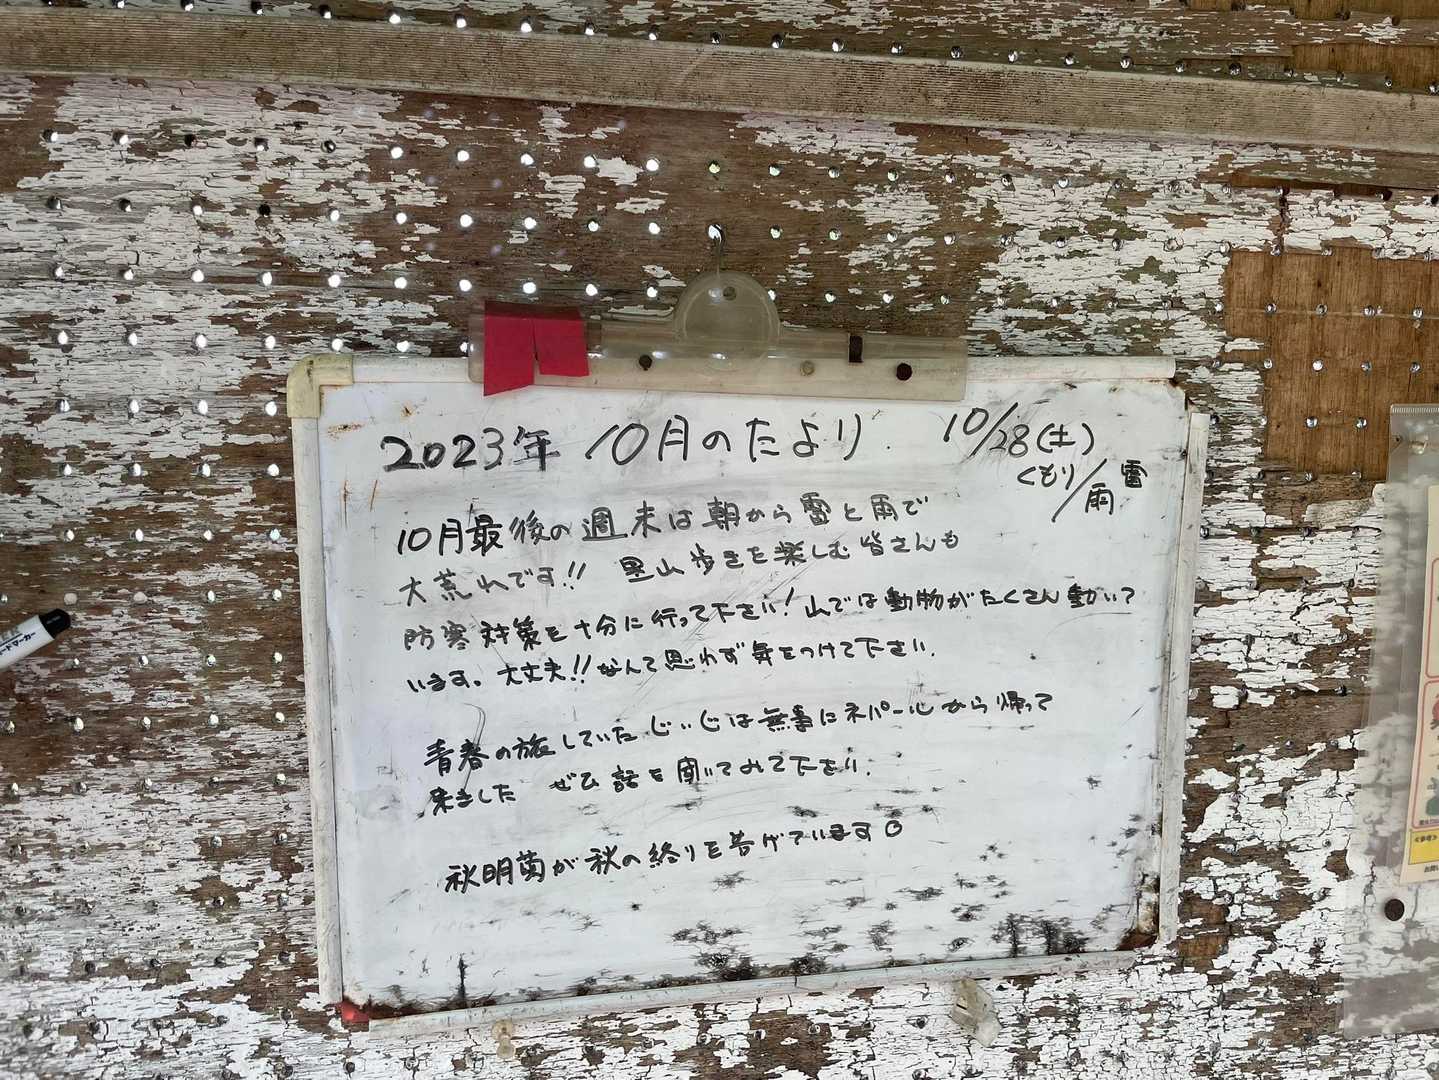 2023年 10月のたより. 10/28(土)
くもり/雨 雷
10月最後の週末は朝から雷と雨で
大荒れです!! 里山歩きを楽しむ皆さんも
防寒対策を十分に行って下さい! 山では動物がたくさん動いて
います。大丈夫!!なんて思わず気をつけて下さい.
青春の旅していたじぃじは無事にネパールから帰って
来ました ぜひ話を聞いてみて下さい.
秋明菊が秋の終りを告げています。
ードマーカー